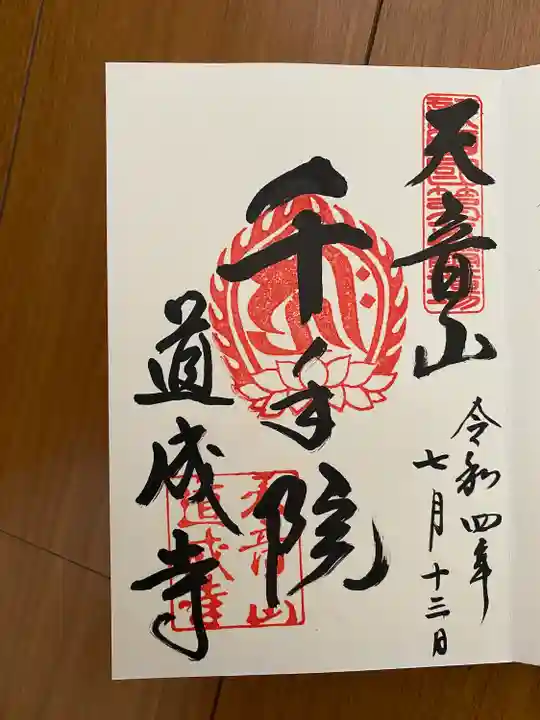 令和四年
七月十三日
天音山
千手院
道成寺
天音山
道成寺